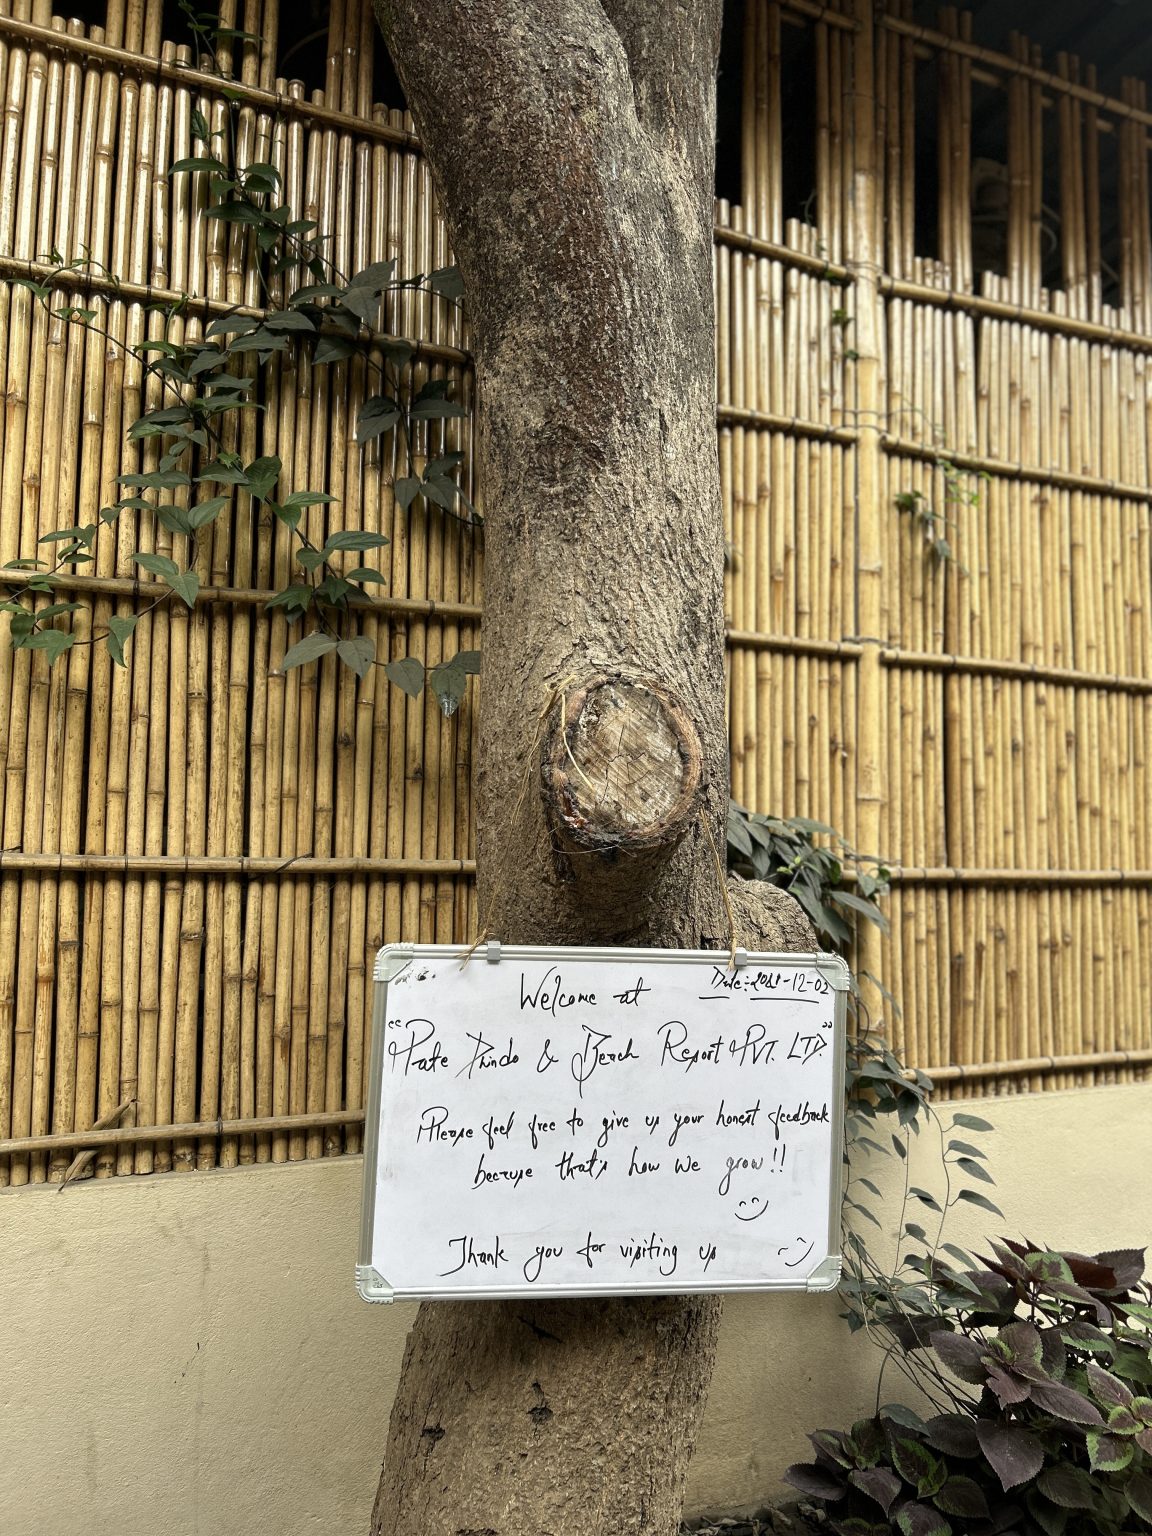 Welcome at
Date:-2081-12-03
"Pate Dhindo & Beach Resort PVT. LTD."
Please feel free to give us your honest feedback
because that's how we grow!!
Thank you for visiting us